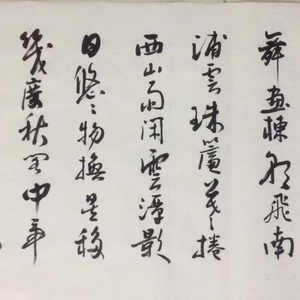 舞畫棟朝飛南
浦雲珠簾暮捲
西山雨閑雲潭影
日悠〻物換星移
幾度秋閣中帝